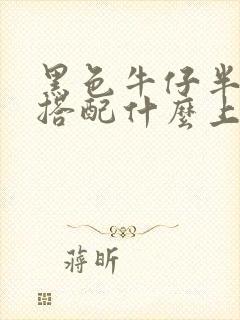 黑色牛仔半
搭配什麼上
蔣昕